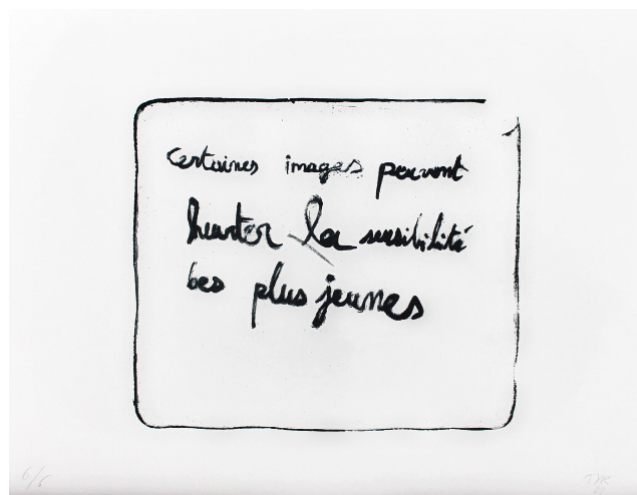 Certaines images peuvent
heurter la sensibilité
des plus jeunes
6/5